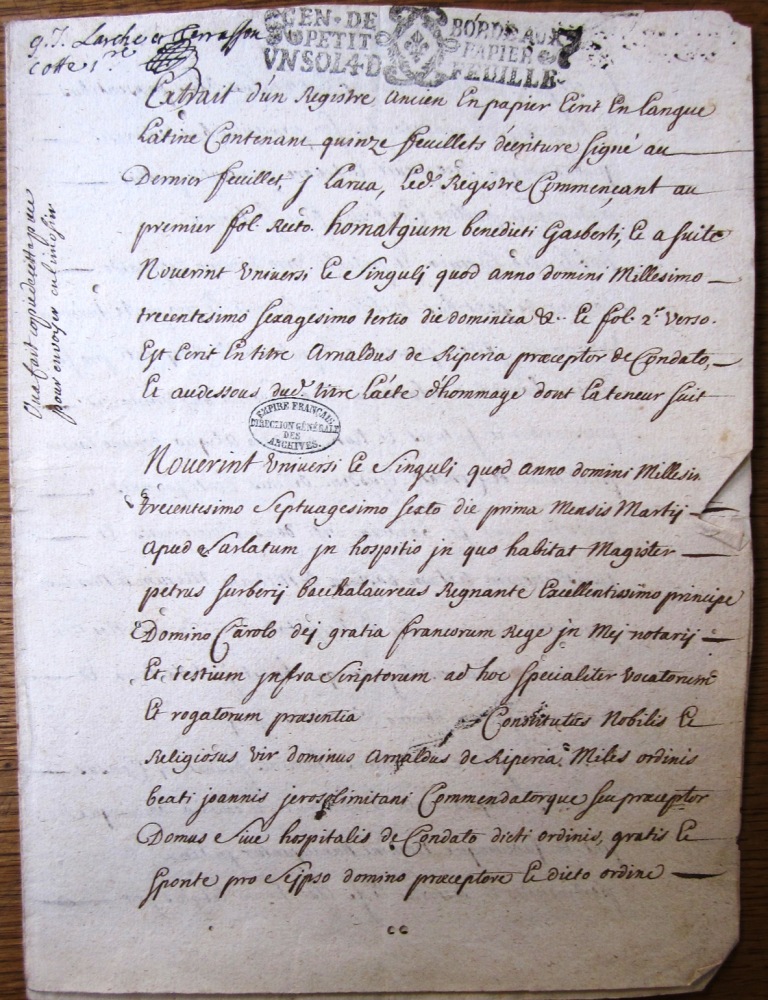 q. J. Larche et Terrasson
cotte 1re
GEN · DE BORDEAUX
PETIT PAPIER
VN SOL 4 · D FEUILLE
Extrait d'un Registre ancien En papier Ecrit En langue
Latine Contenant quinze feuillets d'ecriture signé au
Dernier feuillet, J Larua, Led. Registre Commençant au
premier fol. Recto. homatgium benedicti Gasberti, Et a suite
Noverint Universi Et Singuli quod anno domini Millesimo
trecentesimo sexagesimo tertio die dominica &.. Et fol. 2r verso.
Est Ecrit En titre Arnaldus de Riperia præceptor de Condato,
Et audessous dud. titre L'acte d'hommage dont la teneur suit
EMPIRE FRANÇAIS
DIRECTION GÉNÉRALE
DES
ARCHIVES.
Noverint Universi Et Singuli quod anno domini Millesi.
trecentesimo Septuagesimo sexto die prima Mensis Martij
apud Sarlatum jn hospitio jn quo habitat Magister
petrus surberij bacchalaureus Regnante Excellentissimo principe
Domino Carolo dej gratia francorum Rege jn Mej notarij
Et testium jnfra Scriptorum ad hoc specialiter vocatorum
Et rogatorum præsentia Constitutus Nobilis Et
Religiosus vir dominus Arnaldus de Riperia, Miles ordinis
beati joannis jerosolimitani Commendatorque seu præceptor
Domus Sive hospitalis de Condato dicti ordinis, gratis Et
sponte pro Seipso domino præceptore Et dicto ordine
cc
On a fait copie de cette piece
pour envoyer en limosin